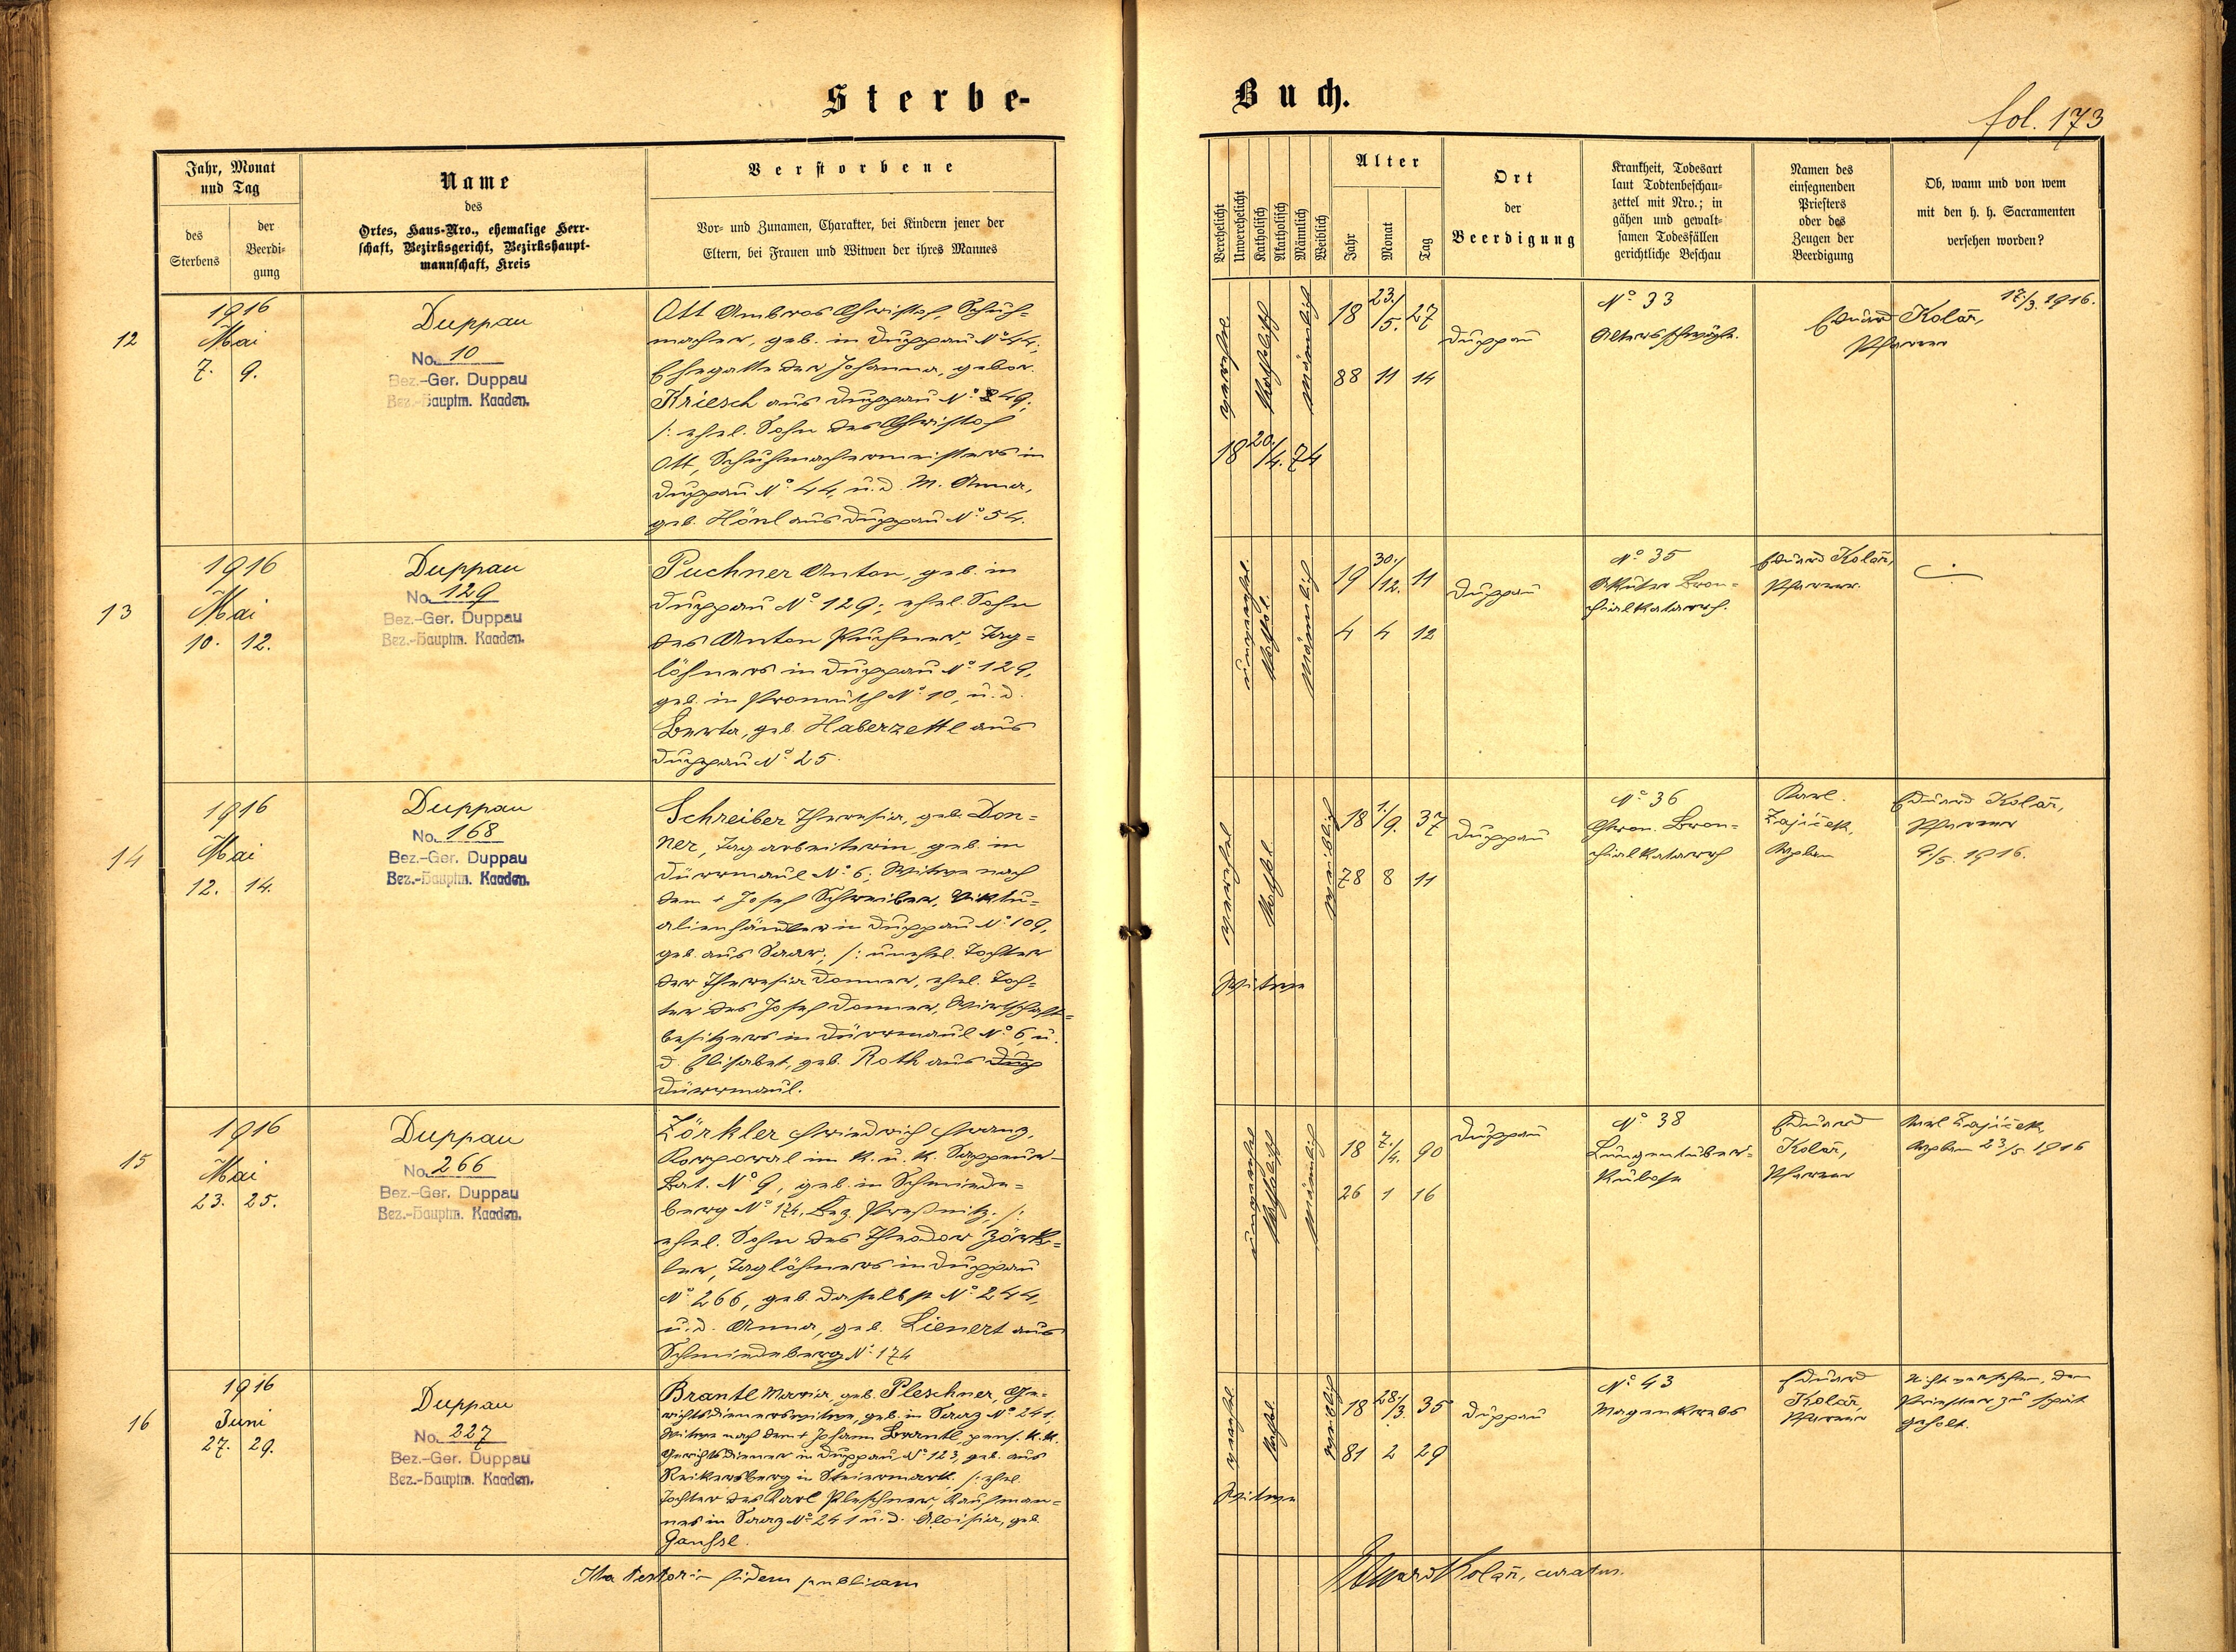 Sterbe-
Buch.
fol. 173
Jahr, Monat
und Tag
des
Sterbens
der
Beerdi-
gung
Name
des
Ortes, Haus-Nro., ehemalige Herr-
schaft, Bezirksgericht, Bezirkshaupt-
mannschaft, Kreis
Verstorbene
Vor- und Zunamen, Charakter, bei Kindern jener der
Eltern, bei Frauen und Witwen der ihres Mannes
Verehelicht
Unverehelicht
Katholisch
Akatholisch
Männlich
Weiblich
Alter
Jahr
Monat
Tag
Ort
der
Beerdigung
Krankheit, Todesart
laut Todtenbeschau-
zettel mit Nro.; in
gähen und gewalt-
samen Todesfällen
gerichtliche Beschau
Namen des
einsegnenden
Priesters
oder des
Zeugen der
Beerdigung
Ob, wann und von wem
mit den h. h. Sacramenten
versehen worden?
12
1916
Mai
7. 9.
Duppau
No. 10
Bez.-Ger. Duppau
Bez.-Hauptm. Kaaden.
Ott Ambros Christof, Schuh-
macher, geb. in Duppau No 44;
Ehegatte der Johanna, gebor.
Kriesch aus Duppau No 249;
/: ehel. Sohn des Christof
Ott, Schuhmachermeisters in
Duppau No 44, u. d. M. Anna,
geb. Hönl aus Duppau No 54.
verehel.
Katholisch
Männlich
18 23./5. 27
88 11 14
18 20./4. 74
Duppau
No 33
Altersschwäche.
Eduard Kolař,
Pfarrer
17./3. 1916.
13
1916
Mai
10. 12.
Duppau
No. 129
Bez.-Ger. Duppau
Bez.-Hauptm. Kaaden.
Puchner Anton, geb. in
Duppau No 129; ehel. Sohn
des Anton Puchner, Tag-
löhners in Duppau No 129,
geb. in Promuth No 10, u. d.
Berta, geb. Haberzettl aus
Duppau No 25.
unverehel.
Kathol.
Männlich
19 30./12. 11
4 4 12
Duppau
No 35
Akuter Bron-
chialkatarrh.
Eduard Kolař,
Pfarrer.
14
1916
Mai
12. 14.
Duppau
No. 168
Bez.-Ger. Duppau
Bez.-Hauptm. Kaaden.
Schreiber Theresia, geb. Don-
ner, Tagarbeiterin, geb. in
Dürrmaul No 6; Witwe nach
dem + Josef Schreiber, Viktu-
alienhändler in Duppau No 109,
geb. aus Saar; /: unehel. Tochter
der Theresia Donner, ehel. Toch-
ter des Josef Donner, Wirtschafts-
besitzers in Dürrmaul No 6, u.
d. Elisabet, geb. Roth aus Dup
Dürrmaul.
verehel
Kathol
weiblich
Witwe
18 1./9. 37
78 8 11
Duppau
No 36
Chron. Bron-
chialkatarrh
Karl.
Zajíček,
Kaplan
Eduard Kolař,
Pfarrer
9./5. 1916.
15
1916
Mai
23. 25.
Duppau
No. 266
Bez.-Ger. Duppau
Bez.-Hauptm. Kaaden.
Zörkler Friedrich Franz,
Korporal im k. u. k. Sappeur-
Bat. No 9, geb. in Schmiede-
berg No 174, Bez. Preßnitz; /:
ehel. Sohn des Theodor Zörk-
ler, Taglöhners in Duppau
No 266, geb. daselbst No 244,
u. d. Anna, geb. Lienert aus
Schmiedeberg No 174
unverehel
Katholisch
Männlich
18 7./4. 90
26 1 16
Duppau
No 38
Lungentuber-
kulose
Eduard
Kolař,
Pfarrer
Karl Zajíček
Kaplan 23/5 1916
16
1916
Juni
27. 29.
Duppau
No. 227
Bez.-Ger. Duppau
Bez.-Hauptm. Kaaden.
Brantl Maria, geb. Pleschner, Ge-
richtsdienerswitwe, geb. in Saaz No 241,
Witwe nach dem + Johann Brantl, pens. k. k.
Gerichtsdiener in Duppau No 123, geb. aus
Reikersberg in Steiermark. /: ehel.
Tochter des Karl Pleschner, Kaufman-
nes in Saaz No 241 u. d. Aloisia, geb.
verehel
Kathol.
weiblich
Witwe
18 28./3. 35
81 2 29
Duppau
No 43
Magenkrebs
Eduard
Kolař,
Pfarrer
Nicht versehen, den
Priester zu spät
geholt.
Ita testor in fidem publicam
Eduard Kolař, curatus.